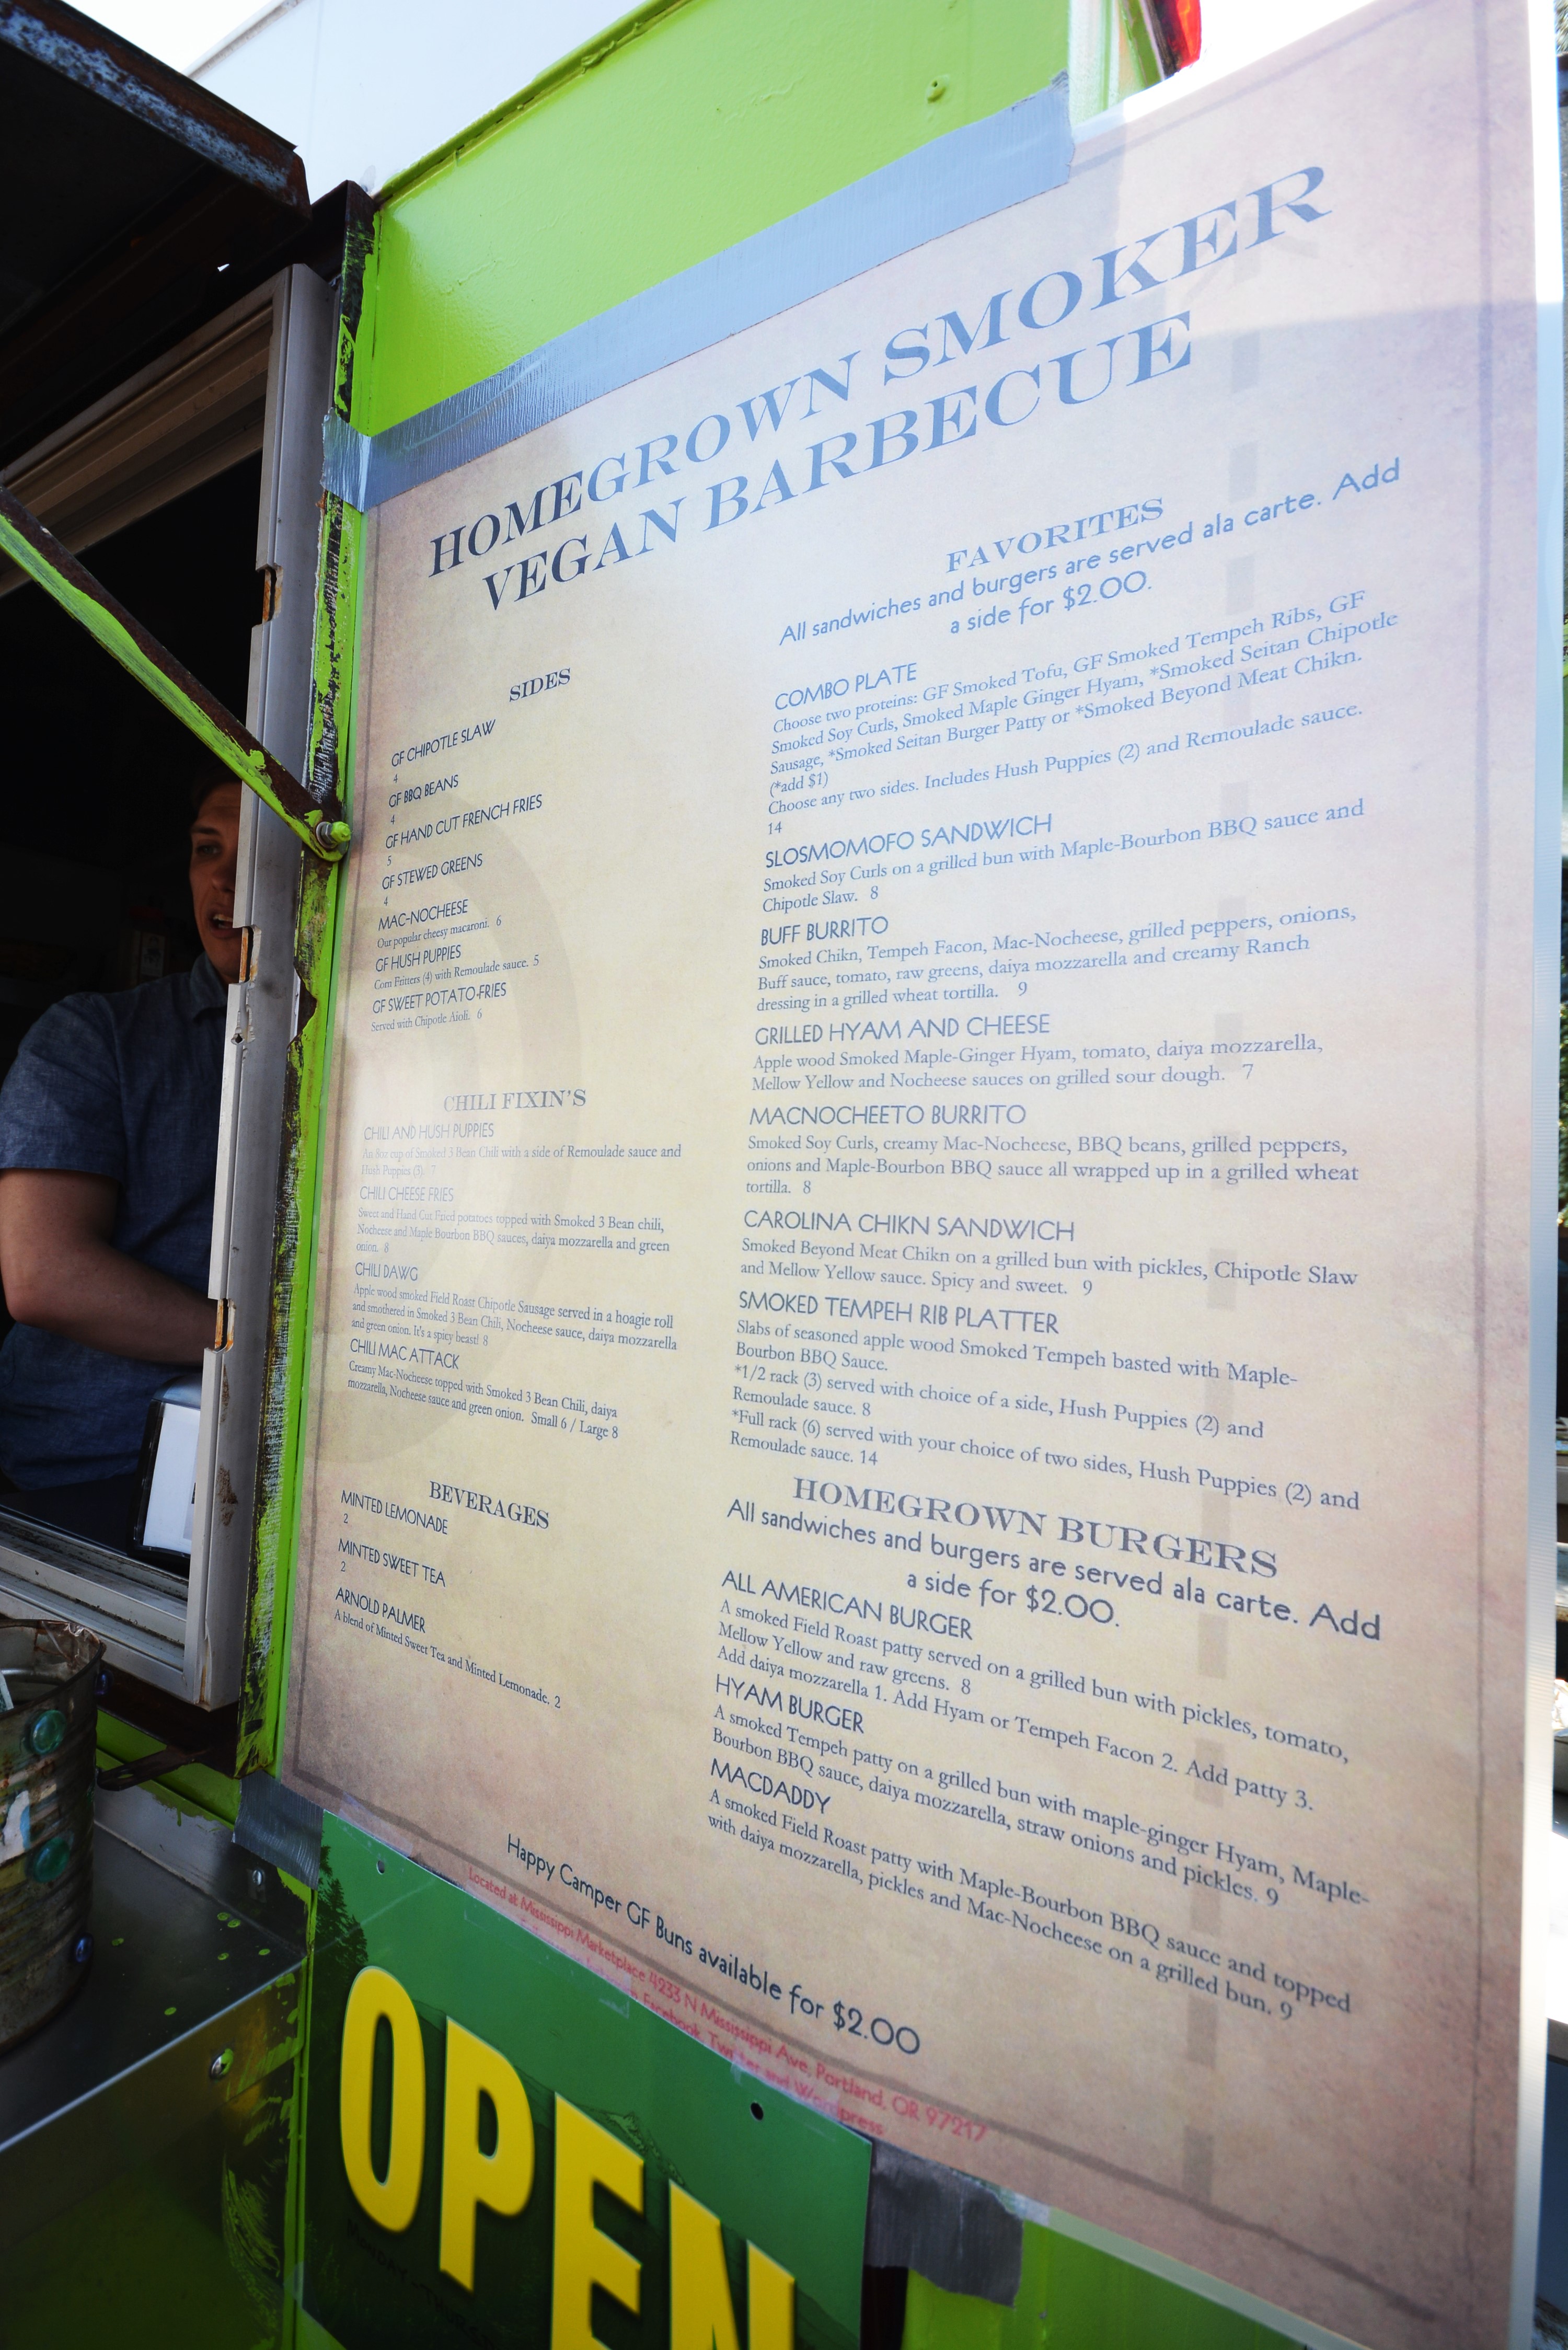 HOMEGROWN SMOKER
VEGAN BARBECUE
SIDES
GF CHIPOTLE SLAW
4
GF BBQ BEANS
4
GF HAND CUT FRENCH FRIES
5
GF STEWED GREENS
4
MAC-NOCHEESE
Our popular cheesy macaroni. 6
GF HUSH PUPPIES
Corn Fritters (4) with Remoulade sauce. 5
GF SWEET POTATO FRIES
Served with Chipotle Aioli. 6
CHILI FIXIN'S
CHILI AND HUSH PUPPIES
An 8oz cup of Smoked 3 Bean Chili with a side of Remoulade sauce and
Hush Puppies (3). 7
CHILI CHEESE FRIES
Sweet and Hand Cut Fried potatoes topped with Smoked 3 Bean chili,
Nocheese and Maple Bourbon BBQ sauces, daiya mozzarella and green
onion. 8
CHILI DAWG
Apple wood smoked Field Roast Chipotle Sausage served in a hoagie roll
and smothered in Smoked 3 Bean Chili, Nocheese sauce, daiya mozzarella
and green onion. It's a spicy beast! 8
CHILI MAC ATTACK
Creamy Mac-Nocheese topped with Smoked 3 Bean Chili, daiya
mozzarella, Nocheese sauce and green onion. Small 6 / Large 8
BEVERAGES
MINTED LEMONADE
2
MINTED SWEET TEA
2
ARNOLD PALMER
A blend of Minted Sweet Tea and Minted Lemonade. 2
FAVORITES
All sandwiches and burgers are served ala carte. Add
a side for $2.00.
COMBO PLATE
Choose two proteins: GF Smoked Tofu, GF Smoked Tempeh Ribs, GF
Smoked Soy Curls, Smoked Maple Ginger Hyam, *Smoked Seitan Chipotle
Sausage, *Smoked Seitan Burger Patty or *Smoked Beyond Meat Chikn.
(*add $1)
Choose any two sides. Includes Hush Puppies (2) and Remoulade sauce.
14
SLOSMOMOFO SANDWICH
Smoked Soy Curls on a grilled bun with Maple-Bourbon BBQ sauce and
Chipotle Slaw. 8
BUFF BURRITO
Smoked Chikn, Tempeh Facon, Mac-Nocheese, grilled peppers, onions,
Buff sauce, tomato, raw greens, daiya mozzarella and creamy Ranch
dressing in a grilled wheat tortilla. 9
GRILLED HYAM AND CHEESE
Apple wood Smoked Maple-Ginger Hyam, tomato, daiya mozzarella,
Mellow Yellow and Nocheese sauces on grilled sour dough. 7
MACNOCHEETO BURRITO
Smoked Soy Curls, creamy Mac-Nocheese, BBQ beans, grilled peppers,
onions and Maple-Bourbon BBQ sauce all wrapped up in a grilled wheat
tortilla. 8
CAROLINA CHIKN SANDWICH
Smoked Beyond Meat Chikn on a grilled bun with pickles, Chipotle Slaw
and Mellow Yellow sauce. Spicy and sweet. 9
SMOKED TEMPEH RIB PLATTER
Slabs of seasoned apple wood Smoked Tempeh basted with Maple-
Bourbon BBQ Sauce.
*1/2 rack (3) served with choice of a side, Hush Puppies (2) and
Remoulade sauce. 8
*Full rack (6) served with your choice of two sides, Hush Puppies (2) and
Remoulade sauce. 14
HOMEGROWN BURGERS
All sandwiches and burgers are served ala carte. Add
a side for $2.00.
ALL AMERICAN BURGER
A smoked Field Roast patty served on a grilled bun with pickles, tomato,
Mellow Yellow and raw greens. 8
Add daiya mozzarella 1. Add Hyam or Tempeh Facon 2. Add patty 3.
HYAM BURGER
A smoked Tempeh patty on a grilled bun with maple-ginger Hyam, Maple-
Bourbon BBQ sauce, daiya mozzarella, straw onions and pickles. 9
MACDADDY
A smoked Field Roast patty with Maple-Bourbon BBQ sauce and topped
with daiya mozzarella, pickles and Mac-Nocheese on a grilled bun. 9
Happy Camper GF Buns available for $2.00
Located at Mississippi Marketplace 4233 N Mississippi Ave, Portland, OR 97217
Facebook, Twitter and Wordpress
OPEN